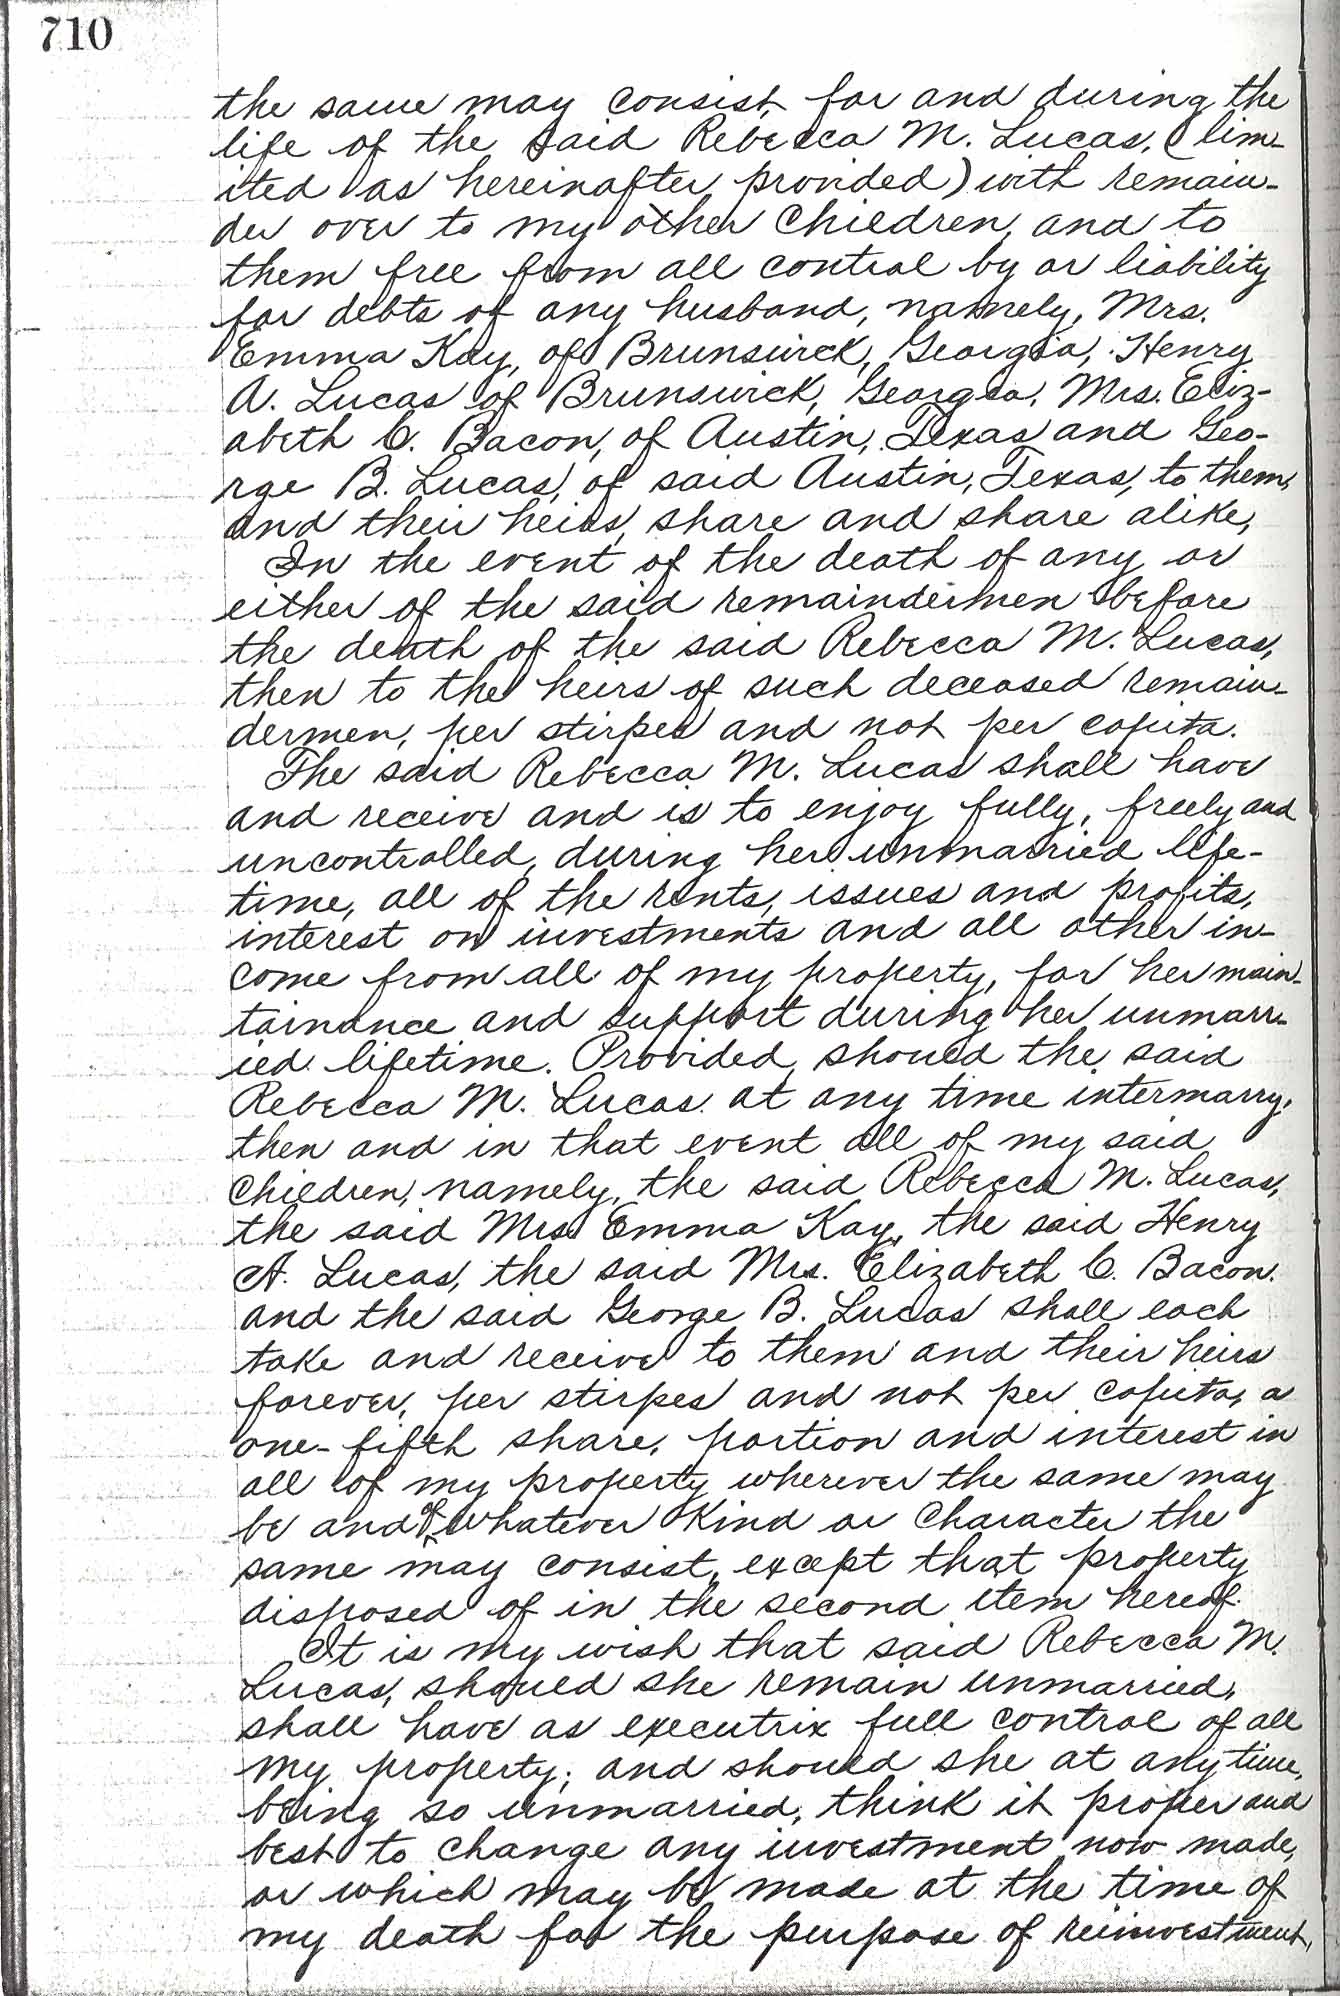 710
the same may consist, for and during the
life of the said Rebecca M. Lucas, (lim-
ited as hereinafter provided) with remain-
der over to my other children, and to
them free from all control by or liability
for debts of any husband, namely, Mrs.
Emma Kay, of Brunswick, Georgia, Henry
A. Lucas of Brunswick, Georgia, Mrs. Eliz-
abeth C. Bacon, of Austin, Texas and Geo-
rge B. Lucas, of said Austin, Texas, to them,
and their heirs, share and share alike,
In the event of the death of any or
either of the said remaindermen before
the death of the said Rebecca M. Lucas,
then to the heirs of such deceased remain-
dermen, per stirpes and not per capita.
The said Rebecca M. Lucas shall have
and receive and is to enjoy fully, freely and
uncontrolled, during her unmarried life-
time, all of the rents, issues and profits,
interest on investments and all other in-
come from all of my property, for her main-
tainance and support during her unmarr-
ied lifetime. Provided, should the said
Rebecca M. Lucas at any time intermarry,
then and in that event all of my said
children, namely, the said Rebecca M. Lucas,
the said Mrs. Emma Kay, the said Henry
A. Lucas, the said Mrs. Elizabeth C. Bacon.
and the said George B. Lucas shall each
take and receive to them and their heirs
forever, per stirpes and not per capita, a
one-fifth share, portion and interest in
all of my property wherever the same may
be and of whatever kind or character the
same may consist, except that property
disposed of in the second item hereof.
It is my wish that said Rebecca M.
Lucas, should she remain unmarried,
shall have as executrix full control of all
my property; and should she at any time,
being so unmarried, think it proper and
best to change any investment now made,
or which may be made at the time of
my death for the purpose of reinvestment,